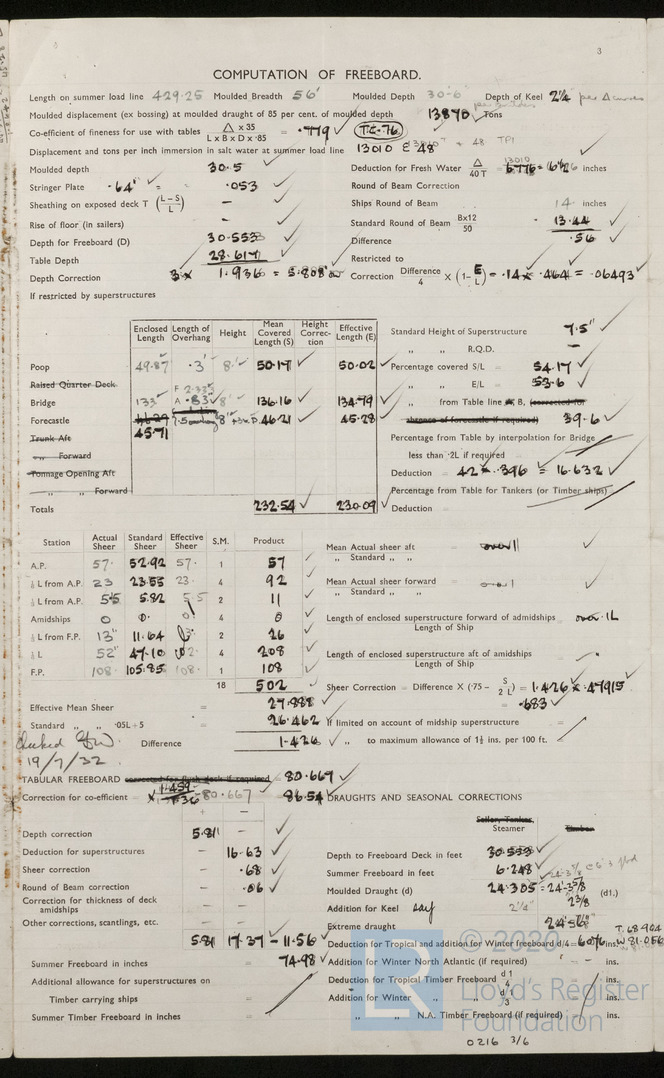 3
COMPUTATION OF FREEBOARD.
Length on summer load line 429.25 Moulded Breadth 56' Moulded Depth 30-6" Depth of Keel 2¼
Moulded displacement (ex bossing) at moulded draught of 85 per cent. of moulded depth 13870 Tons
per builders
Co-efficient of fineness for use with tables Δ x 35 / L x B x D x ·85 = ·779 T.C. 76
Displacement and tons per inch immersion in salt water at summer load line 13010 & 48 TPI
Moulded depth 30.5
Stringer Plate ·64" = ·053
Sheathing on exposed deck T (L – S / L) –
Rise of floor (in sailers) –
Depth for Freeboard (D) 30.553
Table Depth 28.617
Depth Correction 3 x 1.936 = 5.808
If restricted by superstructures
Deduction for Fresh Water Δ / 40 T = inches
Round of Beam Correction
Ships Round of Beam 14 inches
Standard Round of Beam B x 12 / 50 - 13.44
Difference .56
Restricted to
Correction Difference / 4 x (1 – E / L) = ·14 x ·464 = ·06493
Enclosed Length Length of Overhang Height Mean Covered Length (S) Height Correction Effective Length (E)
Poop 49.87 ·3' 8' 50.17 50.02
Raised Quarter Deck
Bridge 133 F 2.33 A ·83 8' 136.16 134.79
Forecastle 45.71 46.21 45.28
Trunk Aft
„ Forward
Tonnage Opening Aft
„ „ Forward
Totals 232.54 230.09
Standard Height of Superstructure 7.5"
„ „ R.Q.D. –
Percentage covered S/L = 54.17
„ „ E/L = 53.6
„ from Table line B, (corrected for
absence of forecastle if required) 39.6
Percentage from Table by interpolation for Bridge
less than ·2L if required =
Deduction = 42 x .396 = 16.632
Percentage from Table for Tankers (or Timber ships)
Deduction =
Station Actual Sheer Standard Sheer Effective Sheer S.M. Product
A.P. 57 52.92 57 1 57
⅙ L from A.P. 23 23.55 23 4 92
⅓ L from A.P. 5·5 5.82 5·5 2 11
Amidships 0 0 0 4 0
⅓ L from F.P. 13" 11.64 2 26
⅙ L 52" 47.10 52 4 208
F.P. 108 105.85 108 1 108
18 502
Effective Mean Sheer = 27.888
Standard „ „ ·05L + 5 = 26.462
Difference 1.426
19/7/32
Mean Actual sheer aft = over 1
„ Standard „ „
Mean Actual sheer forward = over 1
„ Standard „ „
Length of enclosed superstructure forward of admidships / Length of Ship = over ·1L
Length of enclosed superstructure aft of amidships / Length of Ship =
Sheer Correction = Difference X (·75 – S / 2 L) = 1.426 x .47915
= .683
If limited on account of midship superstructure =
„ to maximum allowance of 1½ ins. per 100 ft.
TABULAR FREEBOARD corrected for flush deck if required = 80.667
Correction for co-efficient x 1.459 / 1.36 80.667 86.54
+ –
Depth correction 5.81
Deduction for superstructures – 16.63
Sheer correction – .68
Round of Beam correction – .06
Correction for thickness of deck amidships – –
Other corrections, scantlings, etc. – –
5.81 17.37 – 11.56
Summer Freeboard in inches = 74.98
Additional allowance for superstructures on
Timber carrying ships =
Summer Timber Freeboard in inches =
DRAUGHTS AND SEASONAL CORRECTIONS
Sailer, Tanker, Steamer Timber
Depth to Freeboard Deck in feet 30.553
Summer Freeboard in feet 6.248
Moulded Draught (d) 24.305 = 24'-3⅝ (d1.)
Addition for Keel say 2¼" 2⅜
Extreme draught
Deduction for Tropical and addition for Winter freeboard d/4 = 6.076 ins.
T. 68.904
W 81.056
Addition for Winter North Atlantic (if required) = – – ins.
Deduction for Tropical Timber Freeboard d1 / 4 = ins.
Addition for Winter „ „ d1 / 3 = ins.
„ „ N.A. Timber Freeboard (if required) = ins.
© 2020
LR
Lloyd's Register
Foundation
0216 3/6